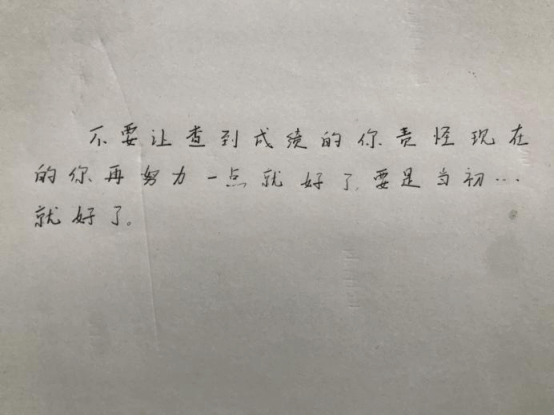 不要让查到成绩的你责怪现在
的你再努力一点就好了.要是当初…
就好了。